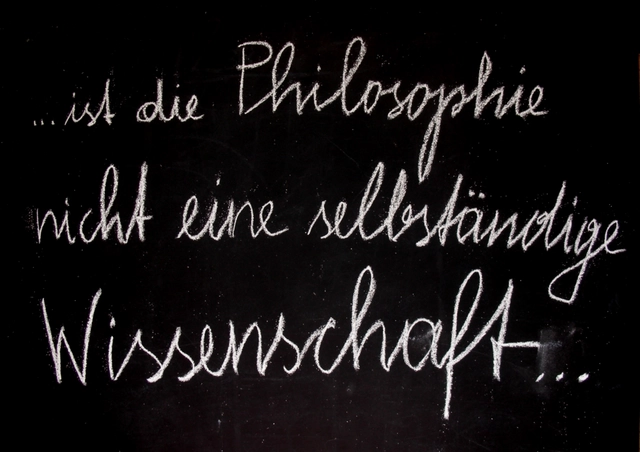 ...ist die Philosophie
nicht eine selbständige
Wissenschaft...